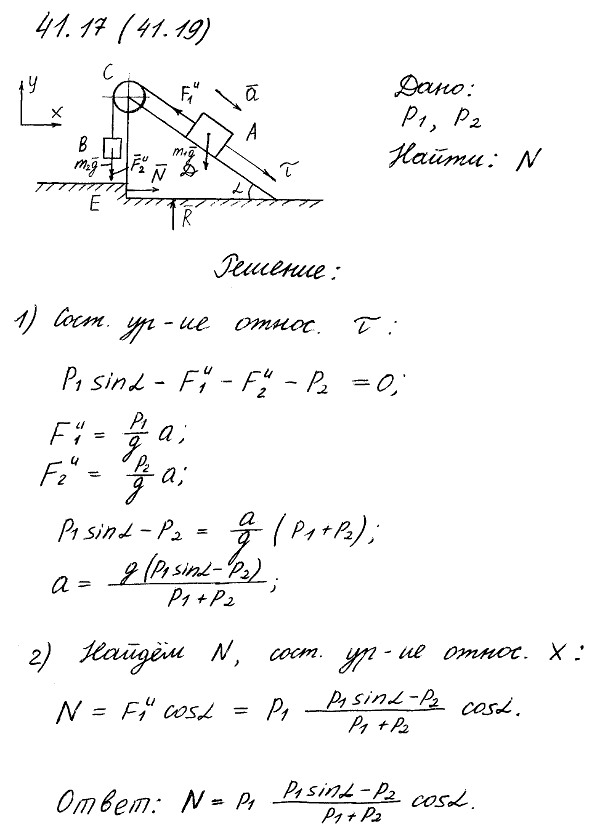 41.17 (41.19)
y
x
C
F₁ᵘ
a̅
A
B
m₂g̅
F̅₂ᵘ
N̅
m₁g̅
D
τ
E
α
R̅
Дано:
P₁, P₂
Найти: N
Решение:
1) Сост. ур-ие относ. τ:
P₁ sinα - F₁ᵘ - F₂ᵘ - P₂ = 0;
F₁ᵘ = P₁/g a;
F₂ᵘ = P₂/g a;
P₁ sinα - P₂ = a/g (P₁+P₂);
a = g(P₁sinα-P₂)/(P₁+P₂);
2) Найдём N, сост. ур-ие относ. x:
N = F₁ᵘ cosα = P₁ (P₁sinα-P₂)/(P₁+P₂) cosα.
Ответ: N = P₁ (P₁sinα-P₂)/(P₁+P₂) cosα.